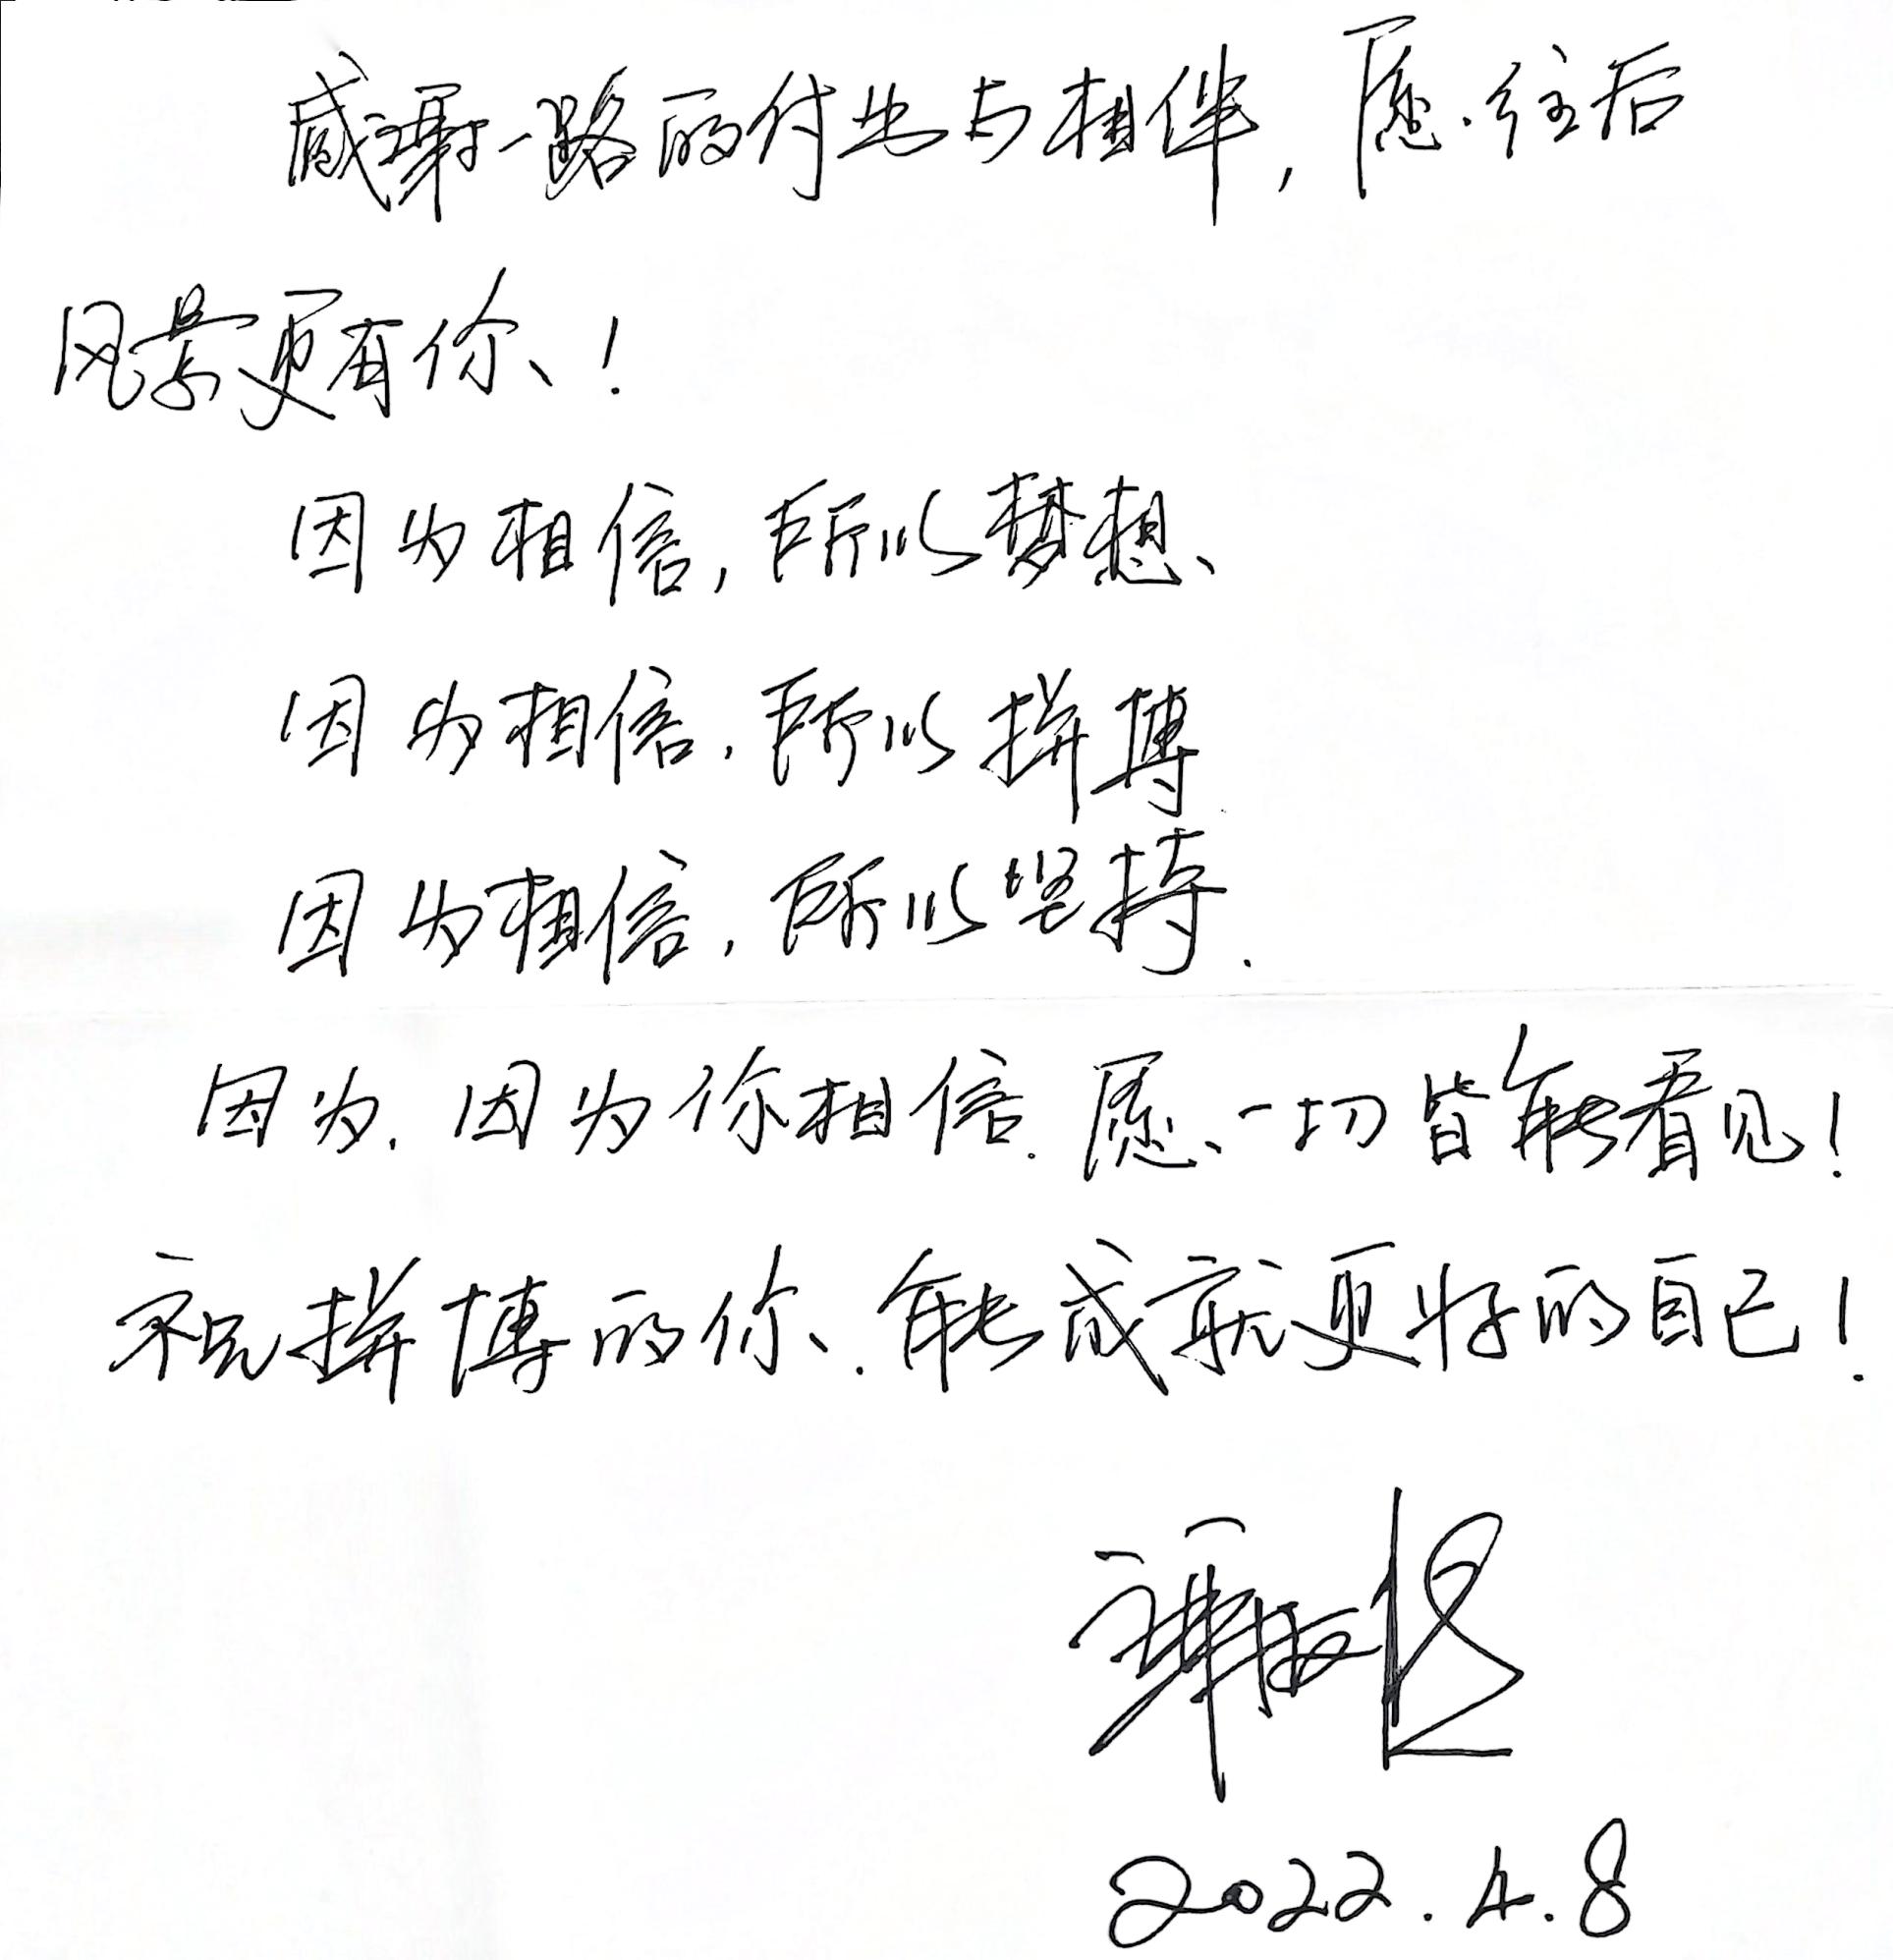 感谢一路的付出与相伴，愿往后
风景更有你！
因为相信，所以梦想、
因为相信，所以拼搏
因为相信，所以坚持.
因为，因为你相信.愿一切皆能看见！
祝拼博的你.能成就更好的自己！
2022.4.8